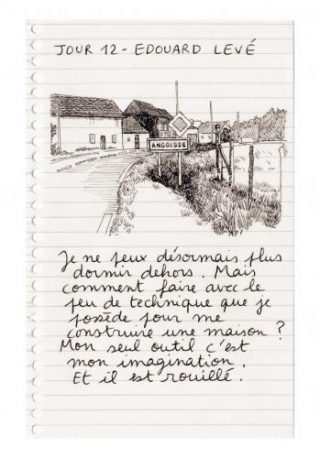 JOUR 12 - EDOUARD LEVÉ
ANGOISSE
Je ne peux désormais plus
dormir dehors. Mais
comment faire avec le
peu de technique que je
possède pour me
construire une maison ?
Mon seul outil c'est
mon imagination.
Et il est rouillé.